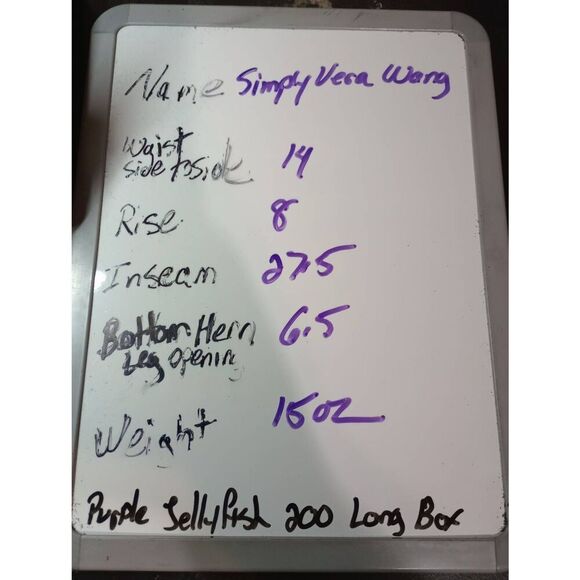 Name Simply Vera Wang
Waist
side to side 14
Rise 8
Inseam 27.5
Bottom Hem 6.5
Leg Opening
Weight 15oz
Purple Jellyfish 200 Long Box